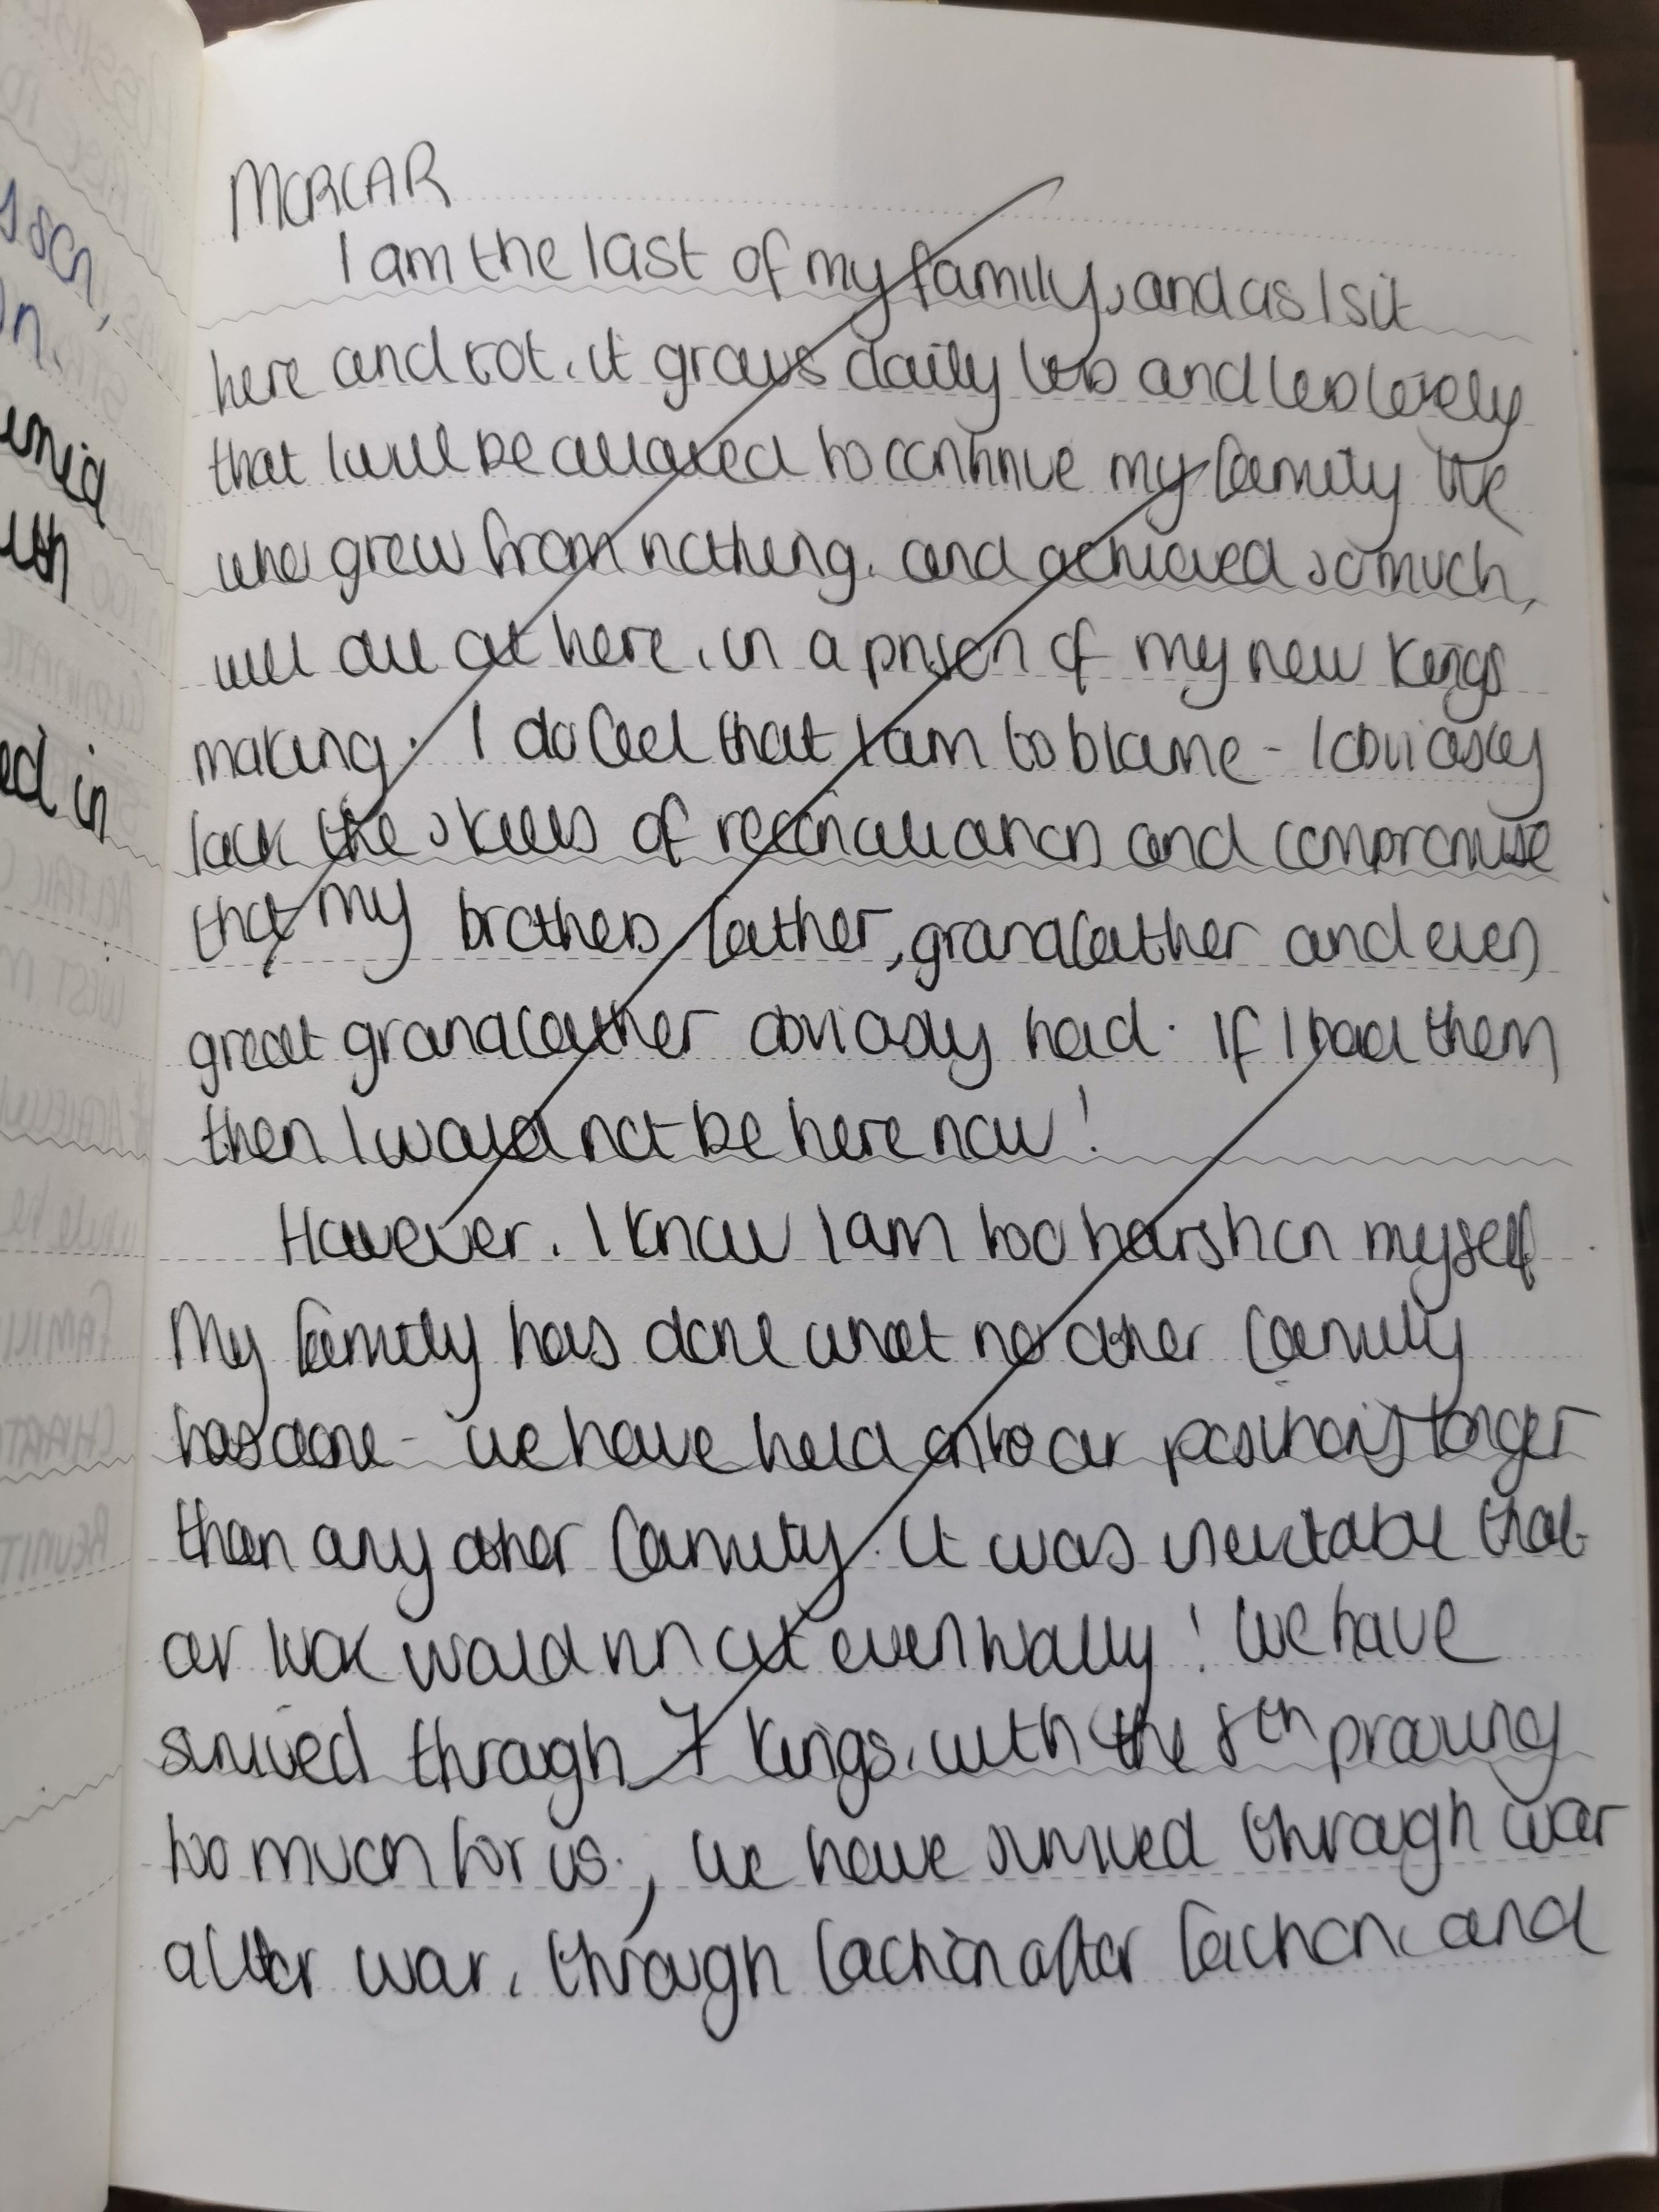 MORCAR
I am the last of my family, and as I sit
here and rot, it grows daily less and less likely
that I will be allowed to continue my family. We
who grew from nothing, and achieved so much,
will die out here, in a prison of my new Kings
making. I do feel that I am to blame - I obviously
lack the skills of reconciliation and compromise
that my brothers, father, grandfather and even
great grandfather obviously had. If I had them
then I would not be here now!
However, I know I am too harsh on myself
My family has done what no other family
has done - we have held onto our positions longer
than any other family. It was inevitable that
our luck would run out eventually! We have
survived through 7 kings, with the 8th proving
too much for us; we have survived through war
after war, through faction after faction, and
sson,
on.
with
ed in